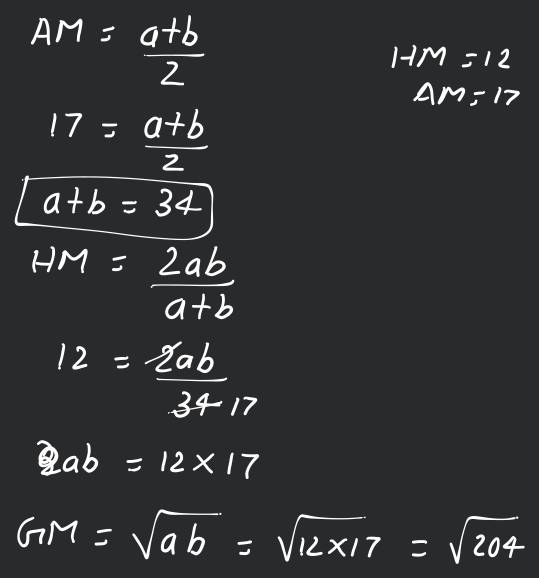 AM = a+b/2
HM = 12
AM = 17
17 = a+b/2
a+b = 34
HM = 2ab/a+b
12 = 2ab/34 17
ab = 12 × 17
GM = √ab = √12×17 = √204